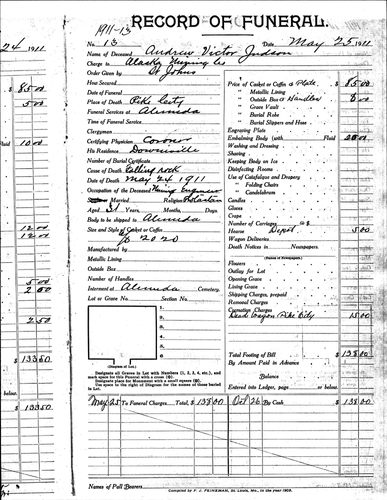 24 1911
$ 8500
500
Fluid 1000
1200
1200
500
200
250
13350
below.
13350
1911-13
RECORD OF FUNERAL.
No. 13 Date May 25 1911
Name of Deceased Andrew Victor Judson
Charge to Alaska
Order Given by St Johns
How Secured
Date of Funeral
Place of Death Pike City
Funeral Services at Alameda
Time of Funeral Service
Clergyman
Certifying Physician Coroner
His Residence Downieville
Number of Burial Certificate
Cause of Death Falling rock
Date of Death May 24 1911
Occupation of the Deceased Mining Engineer
Married Religion
Aged 31 Years, Months, Days.
Body to be shipped to Alameda
Size and Style of Casket or Coffin
2020
Manufactured by
Metallic Lining
Outside Box
Number of Handles
Interment at Alameda Cemetery.
Lot or Grave No. Section No.
1.
2.
3.
4.
5.
6.
(Diagram of Lot.)
Designate all Graves in Lot with Numbers (1, 2, 3, 4, etc.), and
mark space for this Funeral with a cross
Designate place for Monument with a small square
Use space to the right of Diagram for the names of those buried
in Lot.
Price of Casket or Coffin & Plate $ 8500
Metallic Lining
Outside Box & Handles 500
Grave Vault
Burial Robe
Burial Slippers and Hose
Engraving Plate
Embalming Body (with Fluid 2500
Washing and Dressing
Shaving
Keeping Body on Ice
Disinfecting Rooms
Use of Catafalque and Drapery
" Folding Chairs
" Candelabrum
Candles
Gloves
Crape
Number of Carriages @ $
Hearse Depot 500
Wagon Deliveries
Death Notices in Newspapers.
(Names of Newspapers)
Flowers
Outlay for Lot
Opening Grave
Lining Grave
Shipping Charges, prepaid
Removal Charges
Cremation Charges
Dead Wagon Pike City 1500
Total Footing of Bill $ 13800
By Amount Paid in Advance
Balance
Entered into Ledger, page or below.
May 25 To Funeral Charges Total, $ 13800 Oct 26 By Cash $ 13800
Names of Pall Bearers
Compiled by F. J. FEINEMAN, St. Louis, Mo., in the year 1909.